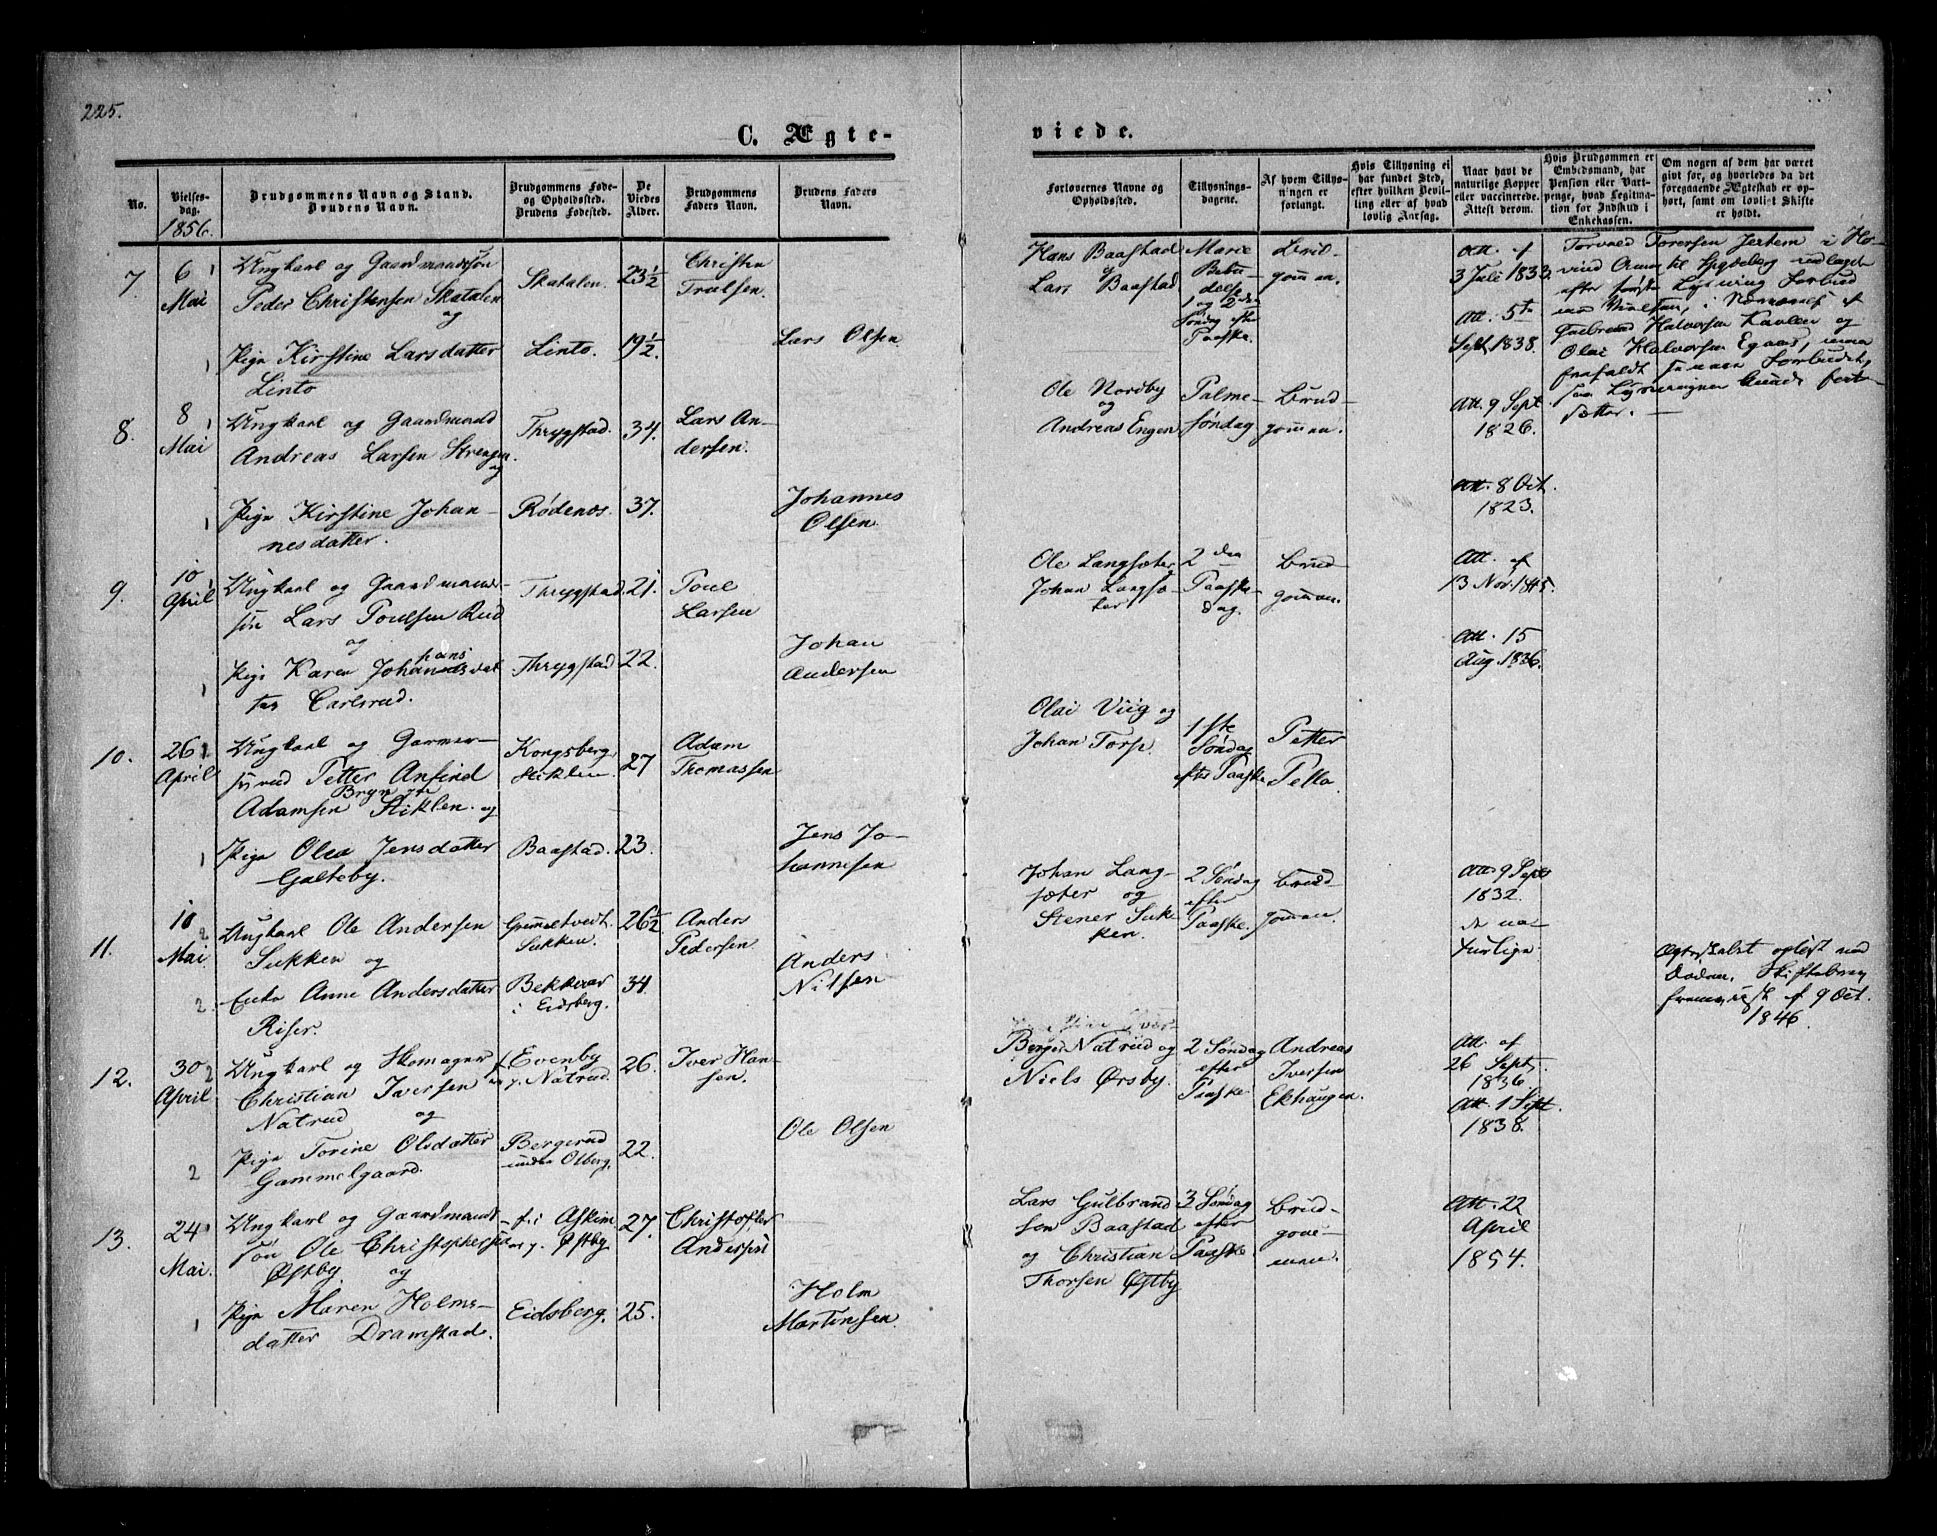 225.
C. Ægte-
viede.
No.
Vielses-
dag.
1856.
Brudgommens Navn og Stand.
Brudens Navn.
Brudgommens Føde-
og Opholdssted.
Brudens Fødested.
De
Viedes
Alder.
Brudgommens
Faders Navn.
Brudens Faders
Navn.
Forlovernes Navne og
Opholdssted.
Tillysnings-
dagene.
Af hvem Tillys-
ningen er
forlangt.
Hvis Tillysning ei
har fundet Sted,
efter hvilken Bevil-
ling eller af hvad
lovlig Aarsag.
Naar havt de
naturlige Kopper
eller vaccinerede.
Attest derom.
Hvis Brudgommen er
Embedsmand, har
Pension eller Vart-
penge, hvad Legitima-
tion for Indskud i
Enkekassen.
Om nogen af dem har været
givt før, og hvorledes da det
foregaaende Ægteskab er op-
hørt, samt om lovligt Skifte
er holdt.
7.
6
Mai
1
Ungkarl og Gaardmandssøn
Peder Christensen Skatalen
og
1
Pige Kirstine Larsdatter
Linto
Skatalen.
Linto.
23½
19½
Christen
Troelsen.
Lars Olsen
Hans Baastad
og
Lars Baastad
Marie
Bebu-
delse
1 og 2den
Søndag efter
Paaske.
Brud-
gommen.
Att. af
3 Juli 1833
Att. 5te
Sept. 1838.
efter første Lysning Forbud
Halvorsen Kavlen og
Olai Halvorsen
frafaldt Forbudet,
sætter. —
8.
8
Mai
1
Ungkarl og Gaardmand
Andreas Larsen Strengen.
og
1
Pige Kirstine Johan-
nesdatter.
Thrygstad.
Rødenæs.
34.
37.
Lars An-
dersen.
Johannes
Olsen.
Ole Nordby
og
Andreas Engen
Palme-
søndag
Brud-
gommen.
Att. 9 Sept.
1826.
Att. 8 Oct.
1823.
9.
10
April
1
Ungkarl og Gaardmands-
søn Lars Poulsen Rud
og
1
Pige Karen Johansdat
hans
ter Carlsrud.
Thrygstad
Thrygstad
21.
22.
Poul
Larsen
Johan
Andersen
Ole Langsæter
Johan Langsæ-
ter
2den
Paaske-
dag.
Brud-
gommen.
Att. af
13 Nov. 1845.
Att. 15
Aug. 1836.
10.
26
April
1
Ungkarl og Garver-
svend Petter Anfind
Bryn
Adamsen Stiklen. og
1
Pige Olea Jensdatter
Galteby.
Kongsberg,
Stiklen
Baastad.
27
23.
Adam
Thomassen
Jens Jo-
hannesen
Olai Viig og
Johan Torp.
1ste
Søndag
efter Paaske
Petter
Pella.
11.
10
Mai
2
Ungkarl Ole Andersen
Sukken og
2
Enke Anne Andersdatter
Riser.
Gummeltvedt.
Sukken.
Bekkevar
i Eidsberg.
26½
34.
Anders
Pedersen
Anders
Nilsen
Johan Lang-
sæter og
Stener Suk-
ken.
2 Søndag
efter
Paaske.
Brud-
gommen.
Att. 9 Sept
1832.
de na-
turlige.
Ægteskabet opløst ved
Døden. Skiftebrev
fremvist af 9 Oct.
1846.
12.
30
April
2
Ungkarl og Skomager
Christian Iversen
Natrud og
2
Pige Torine Olsdatter
Gammelgaard.
f. Evenby
Natrud.
Bergerud
under Olberg.
26.
22.
Iver Han-
sen.
Ole Olsen
Berger Natrud og
Niels Ørsby.
2 Søndag
efter
Paaske
Andreas
Iversen
Ekhaugen.
Att. af
26 Sept.
1836.
Att. 1 Sept.
1838.
13.
24
Mai.
1
Ungkarl og Gaardmands-
søn Ole Christophersen
Østby. og
1
Pige Maren Holms-
datter Dramstad.
f. i Askim
Østby
Eidsberg.
27.
25.
Christoffer
Andersen
Holm
Martinsen
Lars Gulbrand-
sen Baastad
og Christian
Thorsen Østby
3 Søndag
efter
Paaske
Brud-
gom-
men.
Att. 22
April
1854.